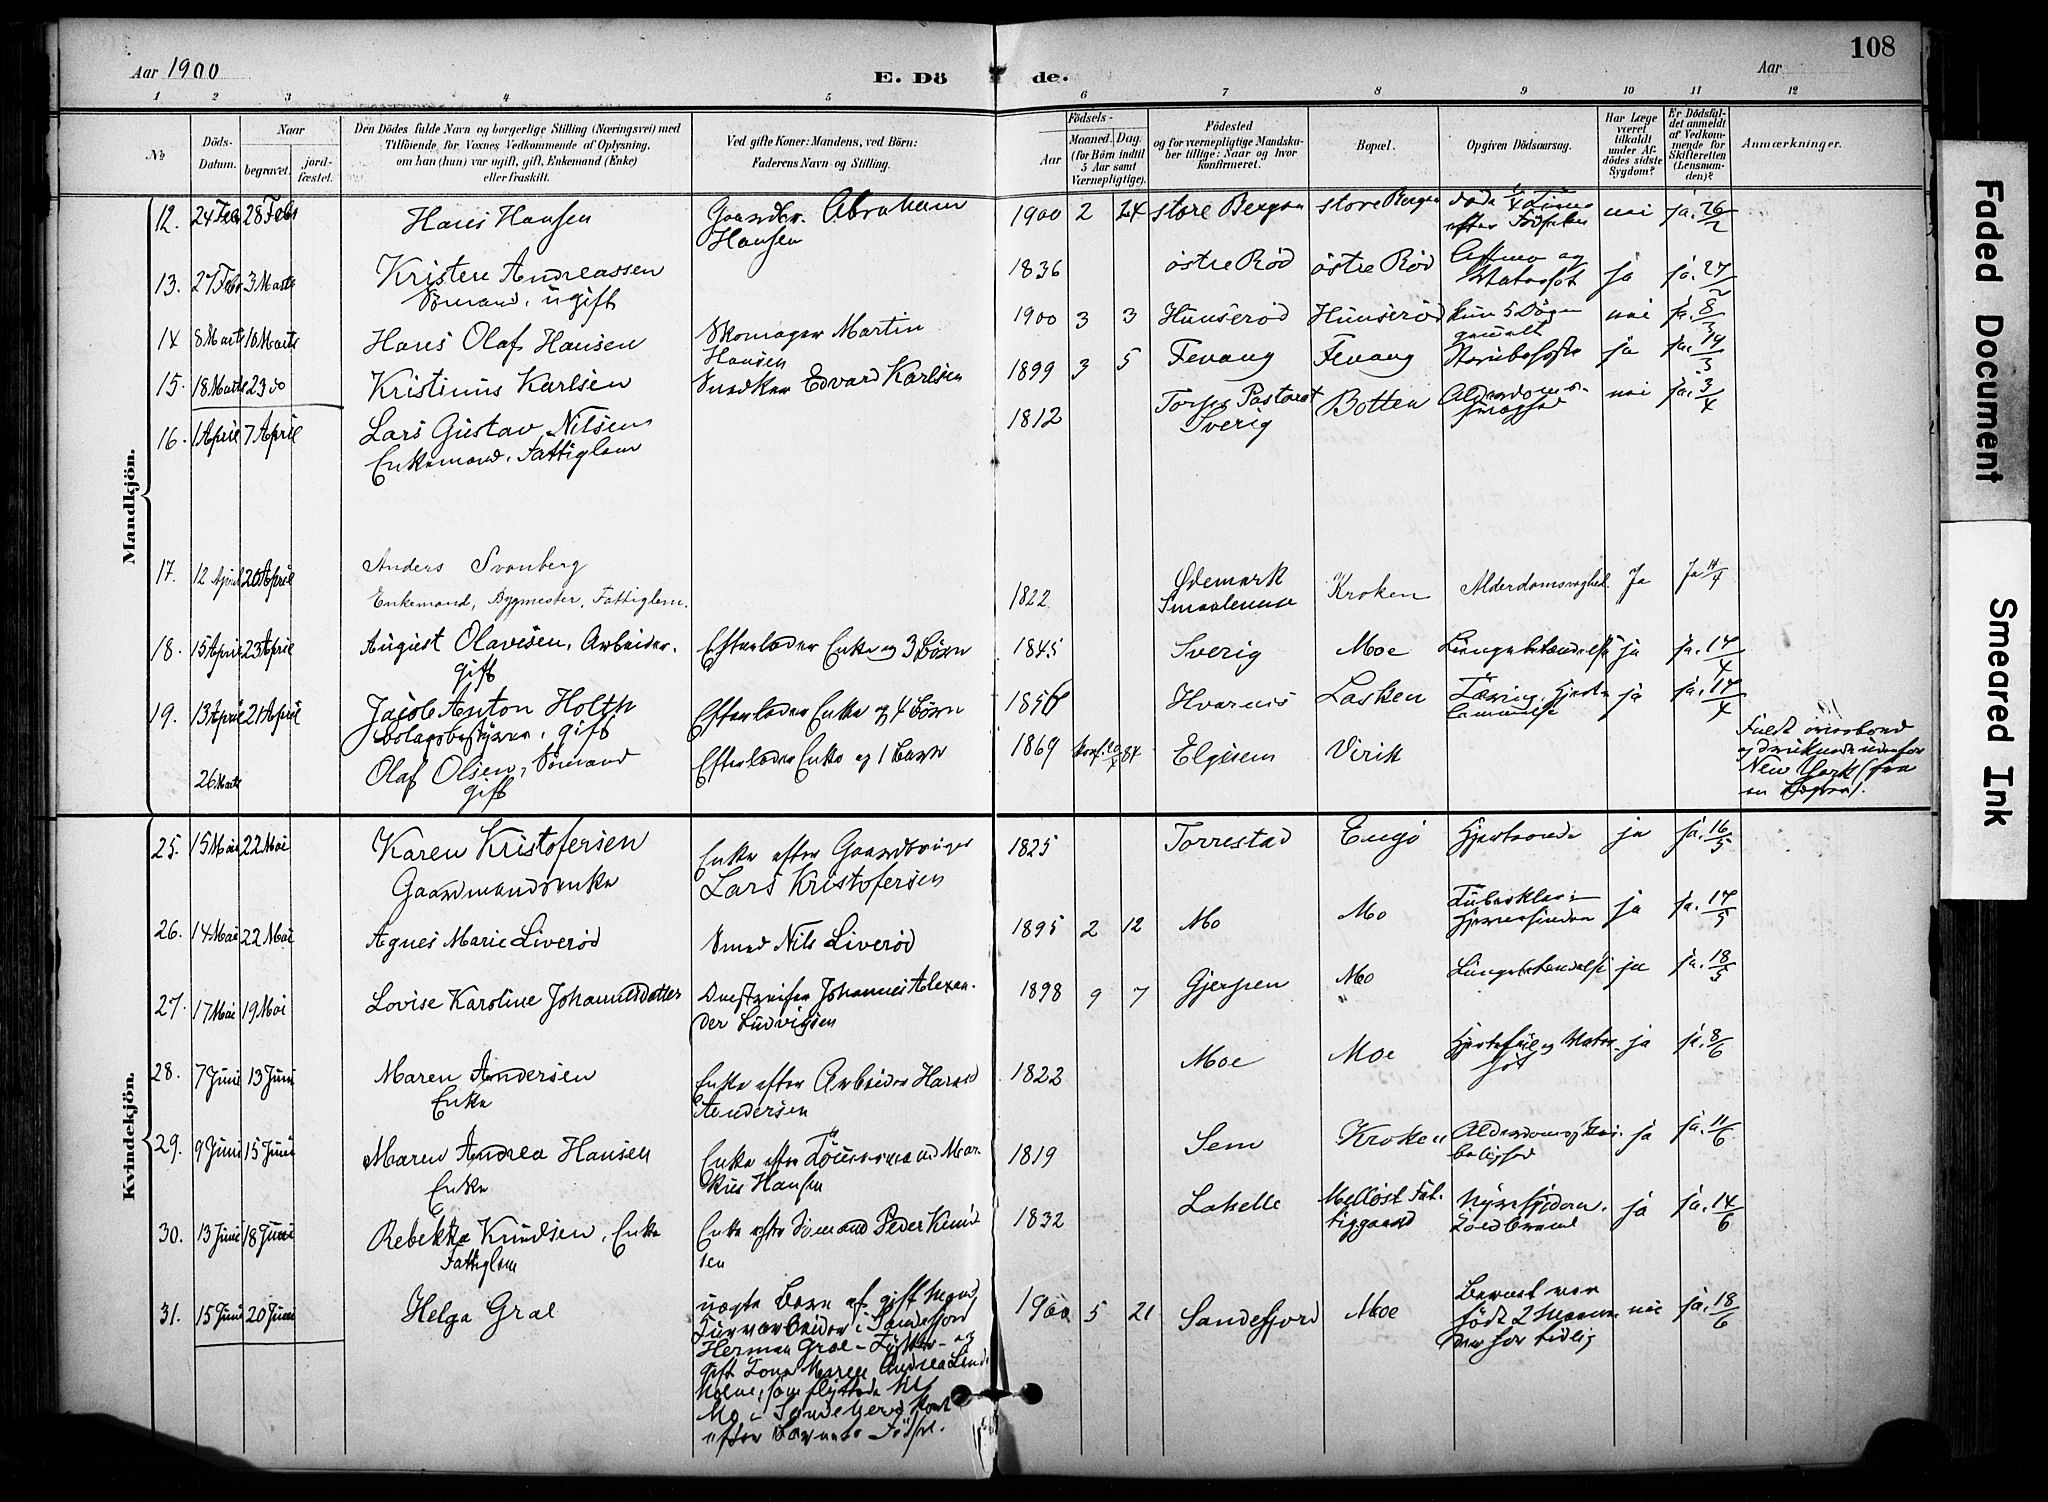 Aar 1900 E. Döde. Aar 108
1 2 3 4 5 6 7 8 9 10 11 12
No
Döds-Datum.
Naar
begravet.
jordfæstet.
Den Dödes fulde Navn og borgerlige Stilling (Næringsvei) med
Tilföiende for Voxnes Vedkommende af Oplysning,
om han (hun) var ugift, gift, Enkemand (Enke)
eller fraskilt.
Ved gifte Koner: Mandens, ved Börn:
Faderens Navn og Stilling.
Födsels-
Aar
Maaned. Dag.
(for Börn indtil
5 Aar samt
Værnepligtige).
Födested
og for værnepligtige Mandskaber tillige: Naar og hvor
konfirmeret.
Bopæl.
Opgiven Dödsaarsag.
Har Læge
været
tilkaldt
under Afdödes sidste
Sygdom?
Er Dödsfaldet anmeldt
af Vedkommende for
Skifteretten
(Lensmanden)?
Anmærkninger.
Mandkjön.
12. 24 Feb 28 Feb Hans Hansen Gaardbr. Abraham
Hansen 1900 2 24 store Bergan store Bergan døde 1/4 Time
efter Fødselen nei ja. 26/2
13. 27 Febr 3 Marts Kristen Andreassen
Sømand, ugift 1836 østre Rød østre Rød Astma og
Vatersot ja ja. 27/2
14 8 Marts 10 Marts Hans Olaf Hansen Skomager Martin
Hansen 1900 3 3 Hunserød Hunserød kun 5 Døgn
gammelt nei ja. 8/3
15. 18 Marts 23 do Kristinus Karlsen Snedker Edvard Karlsen 1899 3 5 Fevang Fevang Strubehoste ja ja. 19/3
16. 1 April 7 April Lars Gustav Nilsen
Enkemand, Fattiglem 1812 Pastorat
Sverig Botten Alderdoms- nei ja. 3/4
17. 12 April 20 April Anders Svanberg
Enkemand, Bygmester, Fattiglem. 1822 Ødemark
Smaalenene Kroken Alderdomsvaghed Ja Ja 14/4
18. 15 April 23 April August Olavesen, Arbeider.
gift Efterlader Enke og 3 Børn 1845 Sverig Moe Lungebetændelse ja ja. 17/4
19. 13 April 21 April Jacob Anton Holth
Bolagsbestyrer, gift Efterlader Enke og 4 Børn 1856 Hvarnes Lasken Tæring, Hjerte
lammelse ja ja. 17/4
26 Marts Olaf Olsen, Sømand
gift Efterlader Enke og 1 Barn 1869 84 Elgesem Virik
Faldt overbord
og druknede udenfor
New York (fra
Kvindekjön.
25. 15 Mai 22 Mai Karen Kristofersen
Gaardmandsenke Enke efter Gaardbruger
Lars Kristofersen 1825 Torrestad Engø Hjerteonde ja ja. 16/5
26. 14 Mai 22 Mai Agnes Marie Liverød Smed Nils Liverød 1895 2 12 Mo Mo Tuberkler i
Hjernehinden ja ja. 17/5
27. 17 Mai 19 Mai Lovise Karoline Johannesdatter Johannes Alexan-
der Ludvigsen 1898 9 7 Gjerpen Mo Lungebetændelse ja ja. 18/5
28. 7 Juni 13 Juni Maren Andersen
Enke Enke efter Arbeider Harald
Andersen 1822 Moe Moe Hjertefeil og Vater-
sot ja ja. 8/6
29. 9 Juni 15 Juni Maren Andrea Hansen
Enke Enke efter Tømmermand Mar-
kus Hansen 1819 Sem Kroken ja ja. 11/6
30. 13 Juni 18 Juni Rebekka Knudsen, Enke
Fattiglem Enke efter Sømand Peder Knud
sen 1832 Lahelle Melløst Fat-
tiggaard Nyresygdom.
Koldbrand ja ja. 14/6
31. 15 Juni 20 Juni Helga Gral uægte Barn af gift Mand,
Farvarbeider i Sandefjord
Herman Gral – Tysker – og
Maren Andrea
som flyttede til
Mo i Sandeherred kort
efter Barnets Fødsel. 1900 5 21 Sandefjord Moe Barnet var
født 2 Maane-
der for tidlig nei ja. 18/6
Faded Document
Smeared Ink